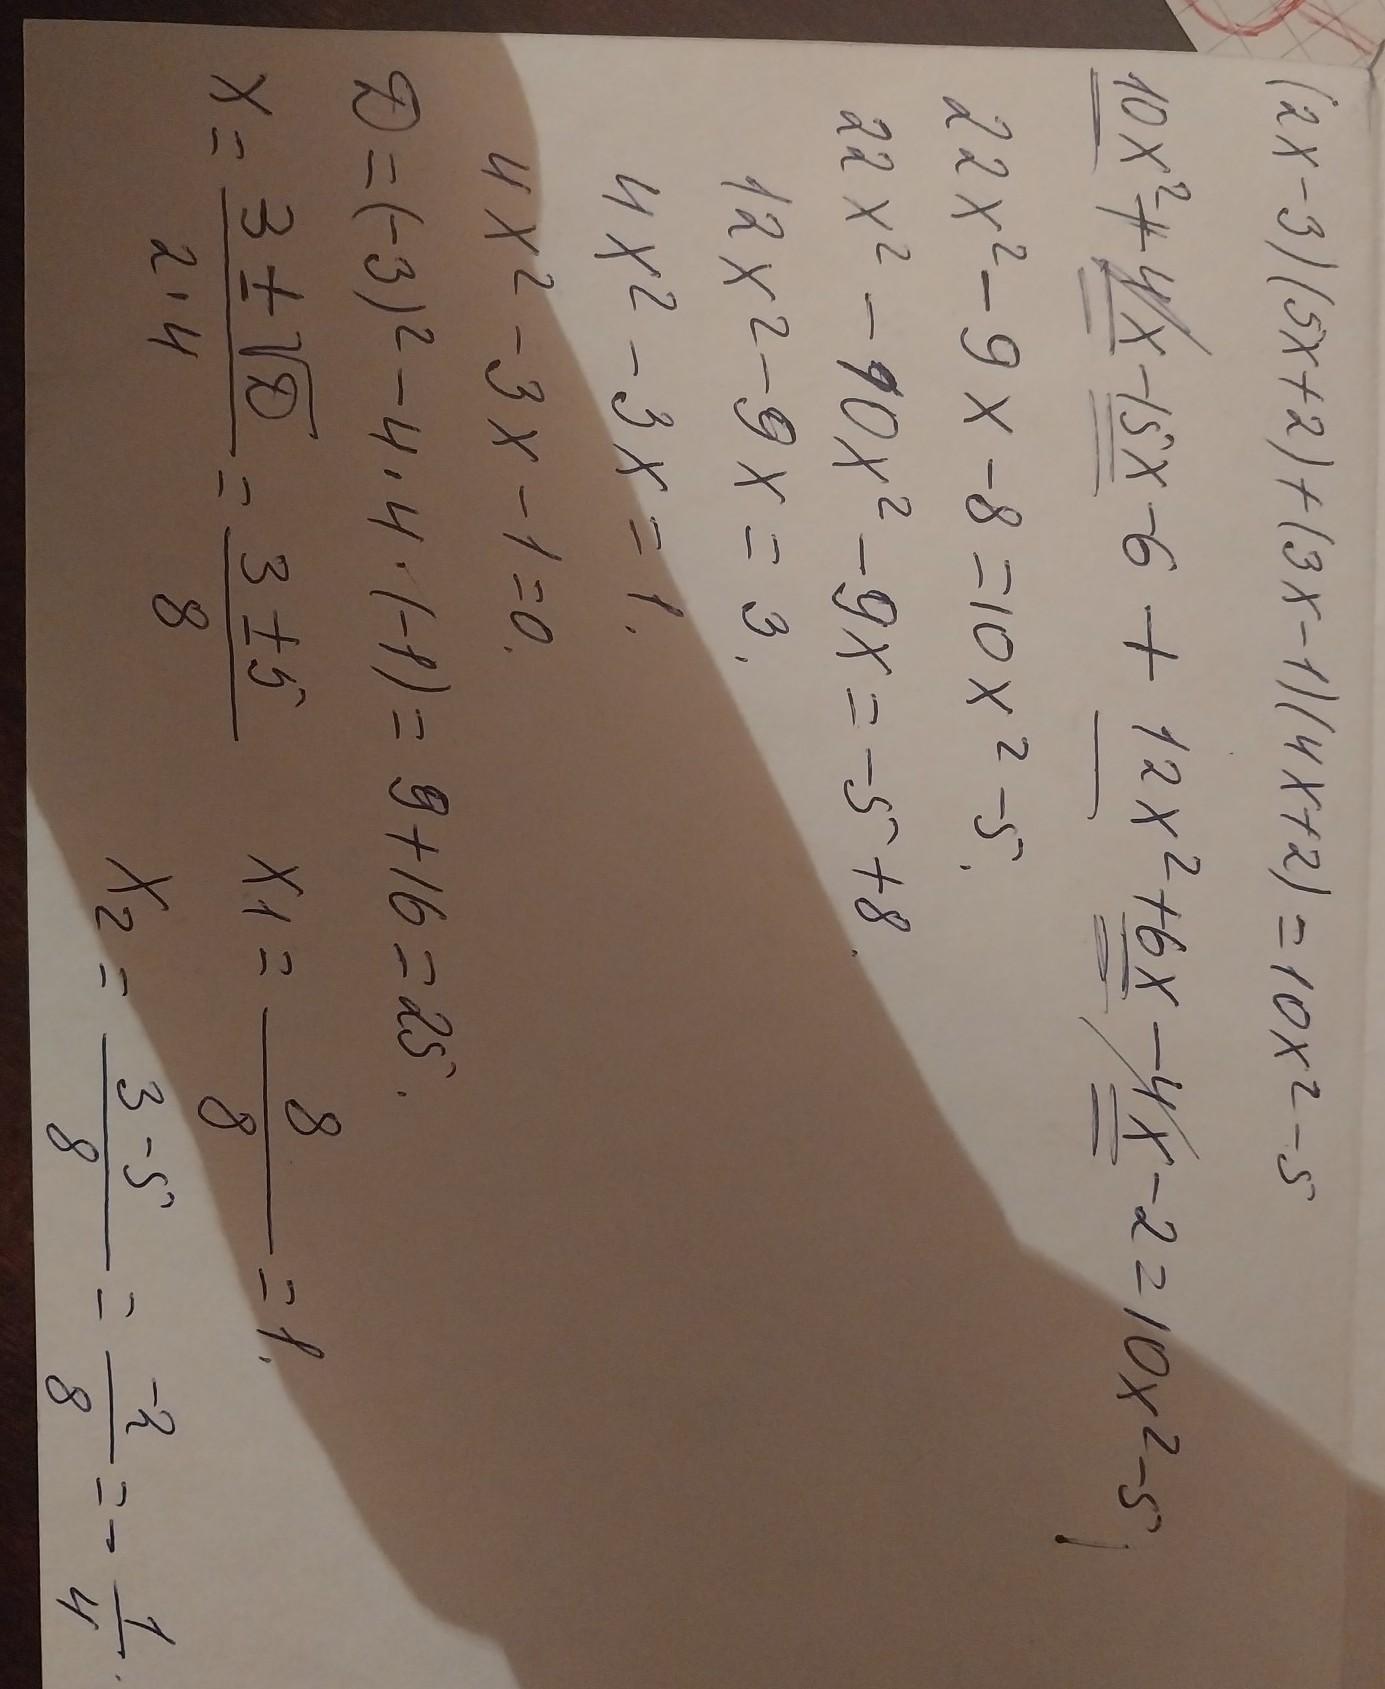 (2x-3)(5x+2)+(3x-1)(4x+2)=10x²-5
10x²+4x-15x-6+12x²+6x-4x-2=10x²-5
22x²-9x-8=10x²-5.
22x²-10x²-9x=-5+8.
12x²-9x=3.
4x²-3x=1.
4x²-3x-1=0.
D=(-3)²-4·4·(-1)=9+16=25.
x=\frac{3±√D}{2·4}=\frac{3±5}{8} x1=\frac{8}{8}=1.
x2=\frac{3-5}{8}=\frac{-2}{8}=-\frac{1}{4}.